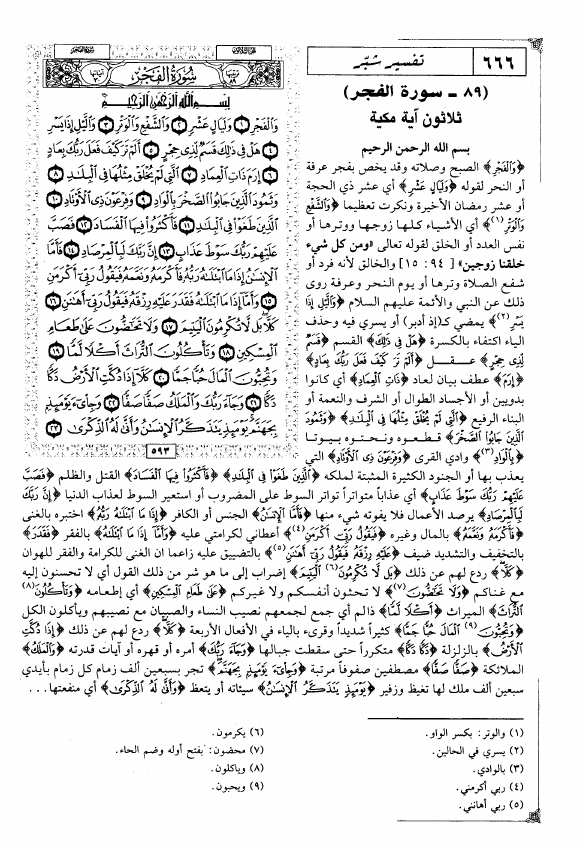 ٦٦٦
تفسير شبّر
(٨٩ ـ سورة الفجر)
ثلاثون آية مكية
بسم الله الرحمن الرحيم
﴿وَالْفَجْرِ﴾ الصبح وصلاته وقد يخص بفجر عرفة
أو النحر لقوله ﴿وَلَيَالٍ عَشْرٍ﴾ أي عشر ذي الحجة
أو عشر رمضان الأخيرة ونكرت تعظيما ﴿وَالشَّفْعِ
وَالْوَتْرِ(١)﴾ أي الأشياء كلها زوجها ووترها أو
نفس العدد أو الخلق لقوله تعالى «ومن كل شيء
خلقنا زوجين» [٩٤: ١٥] والخالق لأنه فرد أو
شفع الصلاة وترها أو يوم النحر وعرفة روى
ذلك عن النبي والأئمة عليهم السلام ﴿وَاللَّيْلِ إِذَا
يَسْرِ(٢)﴾ يمضي كـ(إذ أدبر) أو يسري فيه وحذف
الياء اكتفاء بالكسرة ﴿هَلْ فِي ذَلِكَ﴾ القسم ﴿قَسَمٌ
لِذِي حِجْرٍ﴾ عقل ﴿أَلَمْ تَرَ كَيْفَ فَعَلَ رَبُّكَ بِعَادٍ﴾
﴿إِرَمَ﴾ عطف بيان لعاد ﴿ذَاتِ الْعِمَادِ﴾ أي كانوا
بدويين أو الأجساد الطوال أو الشرف والنعمة أو
البناء الرفيع ﴿الَّتِي لَمْ يُخْلَقْ مِثْلُهَا فِي الْبِلَادِ﴾ ﴿وَثَمُودَ
الَّذِينَ جَابُوا الصَّخْرَ﴾ قطعوه ونحتوه بيوتا
﴿بِالْوَادِ(٣)﴾ وادي القرى ﴿وَفِرْعَوْنَ ذِي الْأَوْتَادِ﴾ التي
يعذب بها أو الجنود الكثيرة المثبتة لملكه ﴿الَّذِينَ طَغَوْا فِي الْبِلَادِ﴾ ﴿فَأَكْثَرُوا فِيهَا الْفَسَادَ﴾ القتل والظلم ﴿فَصَبَّ
عَلَيْهِمْ رَبُّكَ سَوْطَ عَذَابٍ﴾ أي عذاباً متواتراً تواتر السوط على المضروب أو استعير السوط لعذاب الدنيا ﴿إِنَّ رَبَّكَ
لَبِالْمِرْصَادِ﴾ يرصد الأعمال فلا يفوته شيء منها ﴿فَأَمَّا الْإِنْسَانُ﴾ الجنس أو الكافر ﴿إِذَا مَا ابْتَلَاهُ رَبُّهُ﴾ اختبره بالغنى
﴿فَأَكْرَمَهُ وَنَعَّمَهُ﴾ بالمال وغيره ﴿فَيَقُولُ رَبِّي أَكْرَمَنِ(٤)﴾ أعطاني لكرامتي عليه ﴿وَأَمَّا إِذَا مَا ابْتَلَاهُ﴾ بالفقر ﴿فَقَدَرَ﴾
بالتخفيف والتشديد ضيف ﴿عَلَيْهِ رِزْقَهُ فَيَقُولُ رَبِّي أَهَانَنِ(٥)﴾ بالتضييق عليه زاعما ان الغنى للكرامة والفقر للهوان
﴿كَلَّا﴾ ردع لهم عن ذلك ﴿بَلْ لَا تُكْرِمُونَ(٦) الْيَتِيمَ﴾ إضراب إلى ما هو شر من ذلك القول أي لا تحسنون إليه
مع غناكم ﴿وَلَا تَحَاضُّونَ(٧)﴾ لا تحثون أنفسكم ولا غيركم ﴿عَلَى طَعَامِ الْمِسْكِينِ﴾ أي إطعامه ﴿وَتَأْكُلُونَ(٨)
التُّرَاثَ﴾ الميراث ﴿أَكْلًا لَمًّا﴾ ذالم أي جمع لجمعهم نصيب النساء والصبيان مع نصيبهم ويأكلون الكل
﴿وَتُحِبُّونَ(٩) الْمَالَ حُبًّا جَمًّا﴾ كثيراً شديداً وقرىء بالياء في الأفعال الأربعة ﴿كَلَّا﴾ ردع لهم عن ذلك ﴿إِذَا دُكَّتِ
الْأَرْضُ﴾ بالزلزلة ﴿دَكًّا دَكًّا﴾ متكرراً حتى سقطت جبالها ﴿وَجَاءَ رَبُّكَ﴾ أمره أو قهره أو آيات قدرته ﴿وَالْمَلَكُ﴾
الملائكة ﴿صَفًّا صَفًّا﴾ مصطفين صفوفاً مرتبة ﴿وَجِيءَ يَوْمَئِذٍ بِجَهَنَّمَ﴾ تجر بسبعين ألف زمام كل زمام بأيدي
سبعين ألف ملك لها تغيظ وزفير ﴿يَوْمَئِذٍ يَتَذَكَّرُ الْإِنْسَانُ﴾ سيئاته أو يتعظ ﴿وَأَنَّى لَهُ الذِّكْرَى﴾ أي منفعتها...
سُورَةُ الْفَجْرِ
بِسْمِ اللَّهِ الرَّحْمَنِ الرَّحِيمِ
وَالْفَجْرِ ١ وَلَيَالٍ عَشْرٍ ٢ وَالشَّفْعِ وَالْوَتْرِ ٣ وَاللَّيْلِ إِذَا يَسْرِ
٤ هَلْ فِي ذَلِكَ قَسَمٌ لِذِي حِجْرٍ ٥ أَلَمْ تَرَ كَيْفَ فَعَلَ رَبُّكَ بِعَادٍ
٦ إِرَمَ ذَاتِ الْعِمَادِ ٧ الَّتِي لَمْ يُخْلَقْ مِثْلُهَا فِي الْبِلَادِ ٨
وَثَمُودَ الَّذِينَ جَابُوا الصَّخْرَ بِالْوَادِ ٩ وَفِرْعَوْنَ ذِي الْأَوْتَادِ ١٠
الَّذِينَ طَغَوْا فِي الْبِلَادِ ١١ فَأَكْثَرُوا فِيهَا الْفَسَادَ ١٢ فَصَبَّ
عَلَيْهِمْ رَبُّكَ سَوْطَ عَذَابٍ ١٣ إِنَّ رَبَّكَ لَبِالْمِرْصَادِ ١٤ فَأَمَّا
الْإِنْسَانُ إِذَا مَا ابْتَلَاهُ رَبُّهُ فَأَكْرَمَهُ وَنَعَّمَهُ فَيَقُولُ رَبِّي أَكْرَمَنِ
١٥ وَأَمَّا إِذَا مَا ابْتَلَاهُ فَقَدَرَ عَلَيْهِ رِزْقَهُ فَيَقُولُ رَبِّي أَهَانَنِ ١٦
كَلَّا بَلْ لَا تُكْرِمُونَ الْيَتِيمَ ١٧ وَلَا تَحَاضُّونَ عَلَى طَعَامِ
الْمِسْكِينِ ١٨ وَتَأْكُلُونَ التُّرَاثَ أَكْلًا لَمًّا ١٩
وَتُحِبُّونَ الْمَالَ حُبًّا جَمًّا ٢٠ كَلَّا إِذَا دُكَّتِ الْأَرْضُ دَكًّا
دَكًّا ٢١ وَجَاءَ رَبُّكَ وَالْمَلَكُ صَفًّا صَفًّا ٢٢ وَجِيءَ يَوْمَئِذٍ
بِجَهَنَّمَ يَوْمَئِذٍ يَتَذَكَّرُ الْإِنْسَانُ وَأَنَّى لَهُ الذِّكْرَى ٢٣
٥٩٣
(١) والوتر: بكسر الواو.
(٢) يسري في الحالين.
(٣) بالوادي.
(٤) ربي أكرمني.
(٥) ربي أهانني.
(٦) يكرمون.
(٧) محضون: بفتح أوله وضم الحاء.
(٨) وياكلون.
(٩) ويحبون.